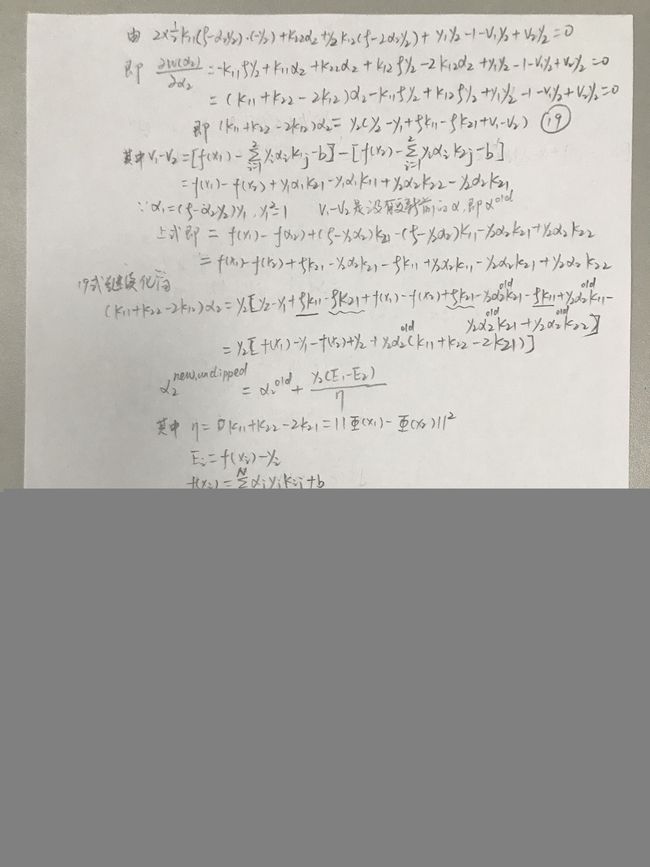 由 2×½k₁₁(ζ-α₂y₂)·(-y₂)+k₂₂α₂+y₂k₁₂(ζ-2α₂y₂)+y₁y₂-1-v₁y₂+v₂y₂=0
即 ∂W(α₂)/∂α₂=-k₁₁ζy₂+k₁₁α₂+k₂₂α₂+k₁₂ζy₂-2k₁₂α₂+y₁y₂-1-v₁y₂+v₂y₂=0
=(k₁₁+k₂₂-2k₁₂)α₂-k₁₁ζy₂+k₁₂ζy₂+y₁y₂-1-v₁y₂+v₂y₂=0
即 (k₁₁+k₂₂-2k₁₂)α₂=y₂(y₂-y₁+ζk₁₁-ζk₂₁+v₁-v₂) ⑲
其中 v₁-v₂=[f(x₁)-∑ᵢ₌₁²yᵢαᵢk₁ⱼ-b]-[f(x₂)-∑ᵢ₌₁²yᵢαᵢk₂ⱼ-b]
=f(x₁)-f(x₂)+y₁α₁k₂₁-y₁α₁k₁₁+y₂α₂k₂₂-y₂α₂k₂₁
∵α₁=(ζ-α₂y₂)y₁, y₁²=1 v₁-v₂是没有更新前的α,即α^old
上式即 = f(x₁)-f(x₂)+(ζ-y₂α₂)k₂₁-(ζ-y₂α₂)k₁₁-y₂α₂k₂₁+y₂α₂k₂₂
=f(x₁)-f(x₂)+ζk₂₁-y₂α₂k₂₁-ζk₁₁+y₂α₂k₁₁-y₂α₂k₂₁+y₂α₂k₂₂
19式继续化简
(k₁₁+k₂₂-2k₁₂)α₂=y₂[y₂-y₁+ζk₁₁-ζk₂₁+f(x₁)-f(x₂)+ζk₂₁-y₂α₂^old k₂₁-ζk₁₁+y₂α₂^old k₁₁-
y₂α₂^old k₂₁+y₂α₂^old k₂₂)]
=y₂[f(x₁)-y₁-f(x₂)+y₂+y₂α₂^old(k₁₁+k₂₂-2k₂₁)]
α₂^new,unclipped = α₂^old + y₂(E₁-E₂)/η
其中 η=k₁₁+k₂₂-2k₂₁=||Φ(x₁)-Φ(x₂)||²
Eᵢ=f(xᵢ)-yᵢ
f(xᵢ)=∑ᴺαⱼyⱼkᵢⱼ+b